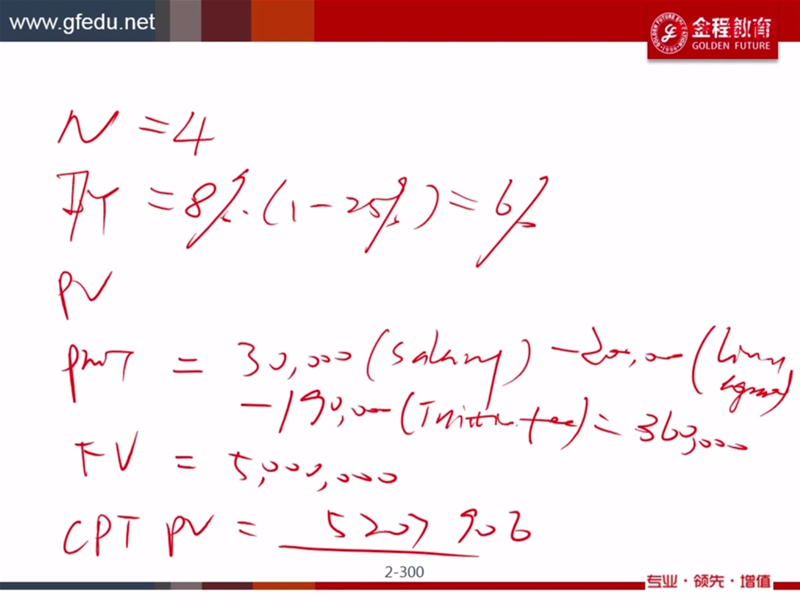 www.gfedu.net
金程教育
GOLDEN FUTURE
N = 4
I/Y = 8%·(1-25%) = 6%
PV
PMT = 30,000 (Salary) -200,000 (Living
-190,000 (Tuition fee) = 360,000
FV = 5,000,000
CPT PV = 5207906
2-300
专业·领先·增值